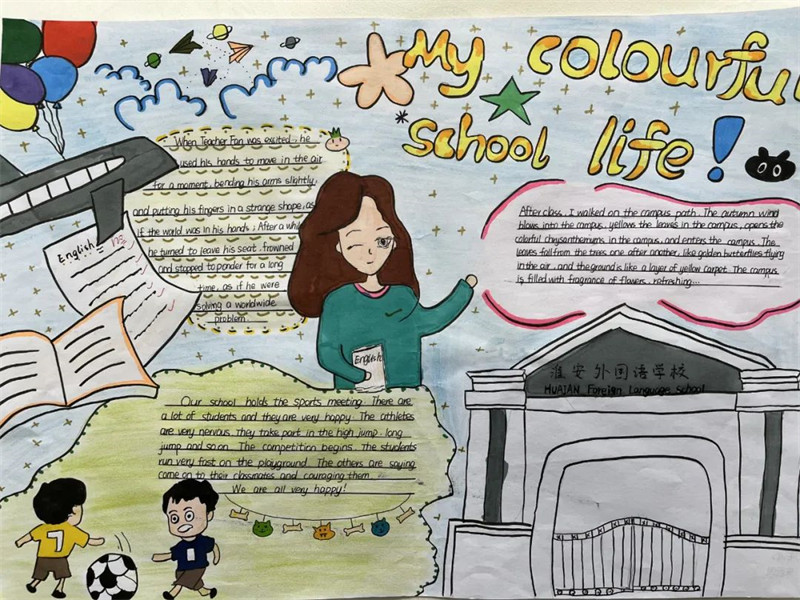 My colourful
school life!
When Teacher Fan was excited, he
used his hands to move in the air
for a moment, bending his arms slightly,
and putting his fingers in a strange shape, as
if the world was in his hands; After a while
he turned to leave his seat, frowned
and stopped to ponder for a long
time, as if he were
solving a worldwide
problem.
English
After class, I walked on the campus path. The autumn wind
blows into the campus, yellows the leaves in the campus, opens the
colorful chrysanthemums in the campus, and enters the campus. The
leaves fall from the trees one after another, like golden butterflies flying
in the air, and the ground is like a layer of yellow carpet. The campus
is filled with fragrance of flowers, refreshing...
English
淮安外国语学校
HUAIAN Foreign Language School
Our school holds the sports meeting. There are
a lot of students and they are very happy. The athletes
are very nervous. They take part in the high jump, long
jump and so on. The competition begins. The students
run very fast on the playground. The others are saying
come on to their classmates and couraging them.
We are all very happy!
7
1